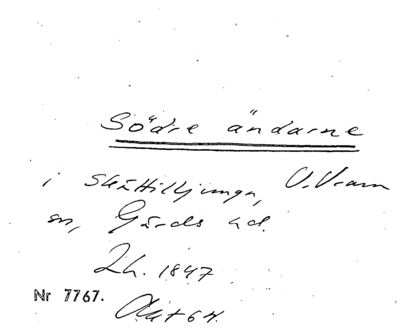 Södre ändarne
i Skättilljunga, V. Vram
sn, Gärds hd.
Lh. 1847
Nr 7767.
Akt 64.